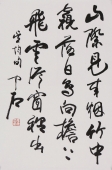 山際見來烟竹中
窺落日鳥向檐上
飛雲從窗裏出
吳均詩 中石